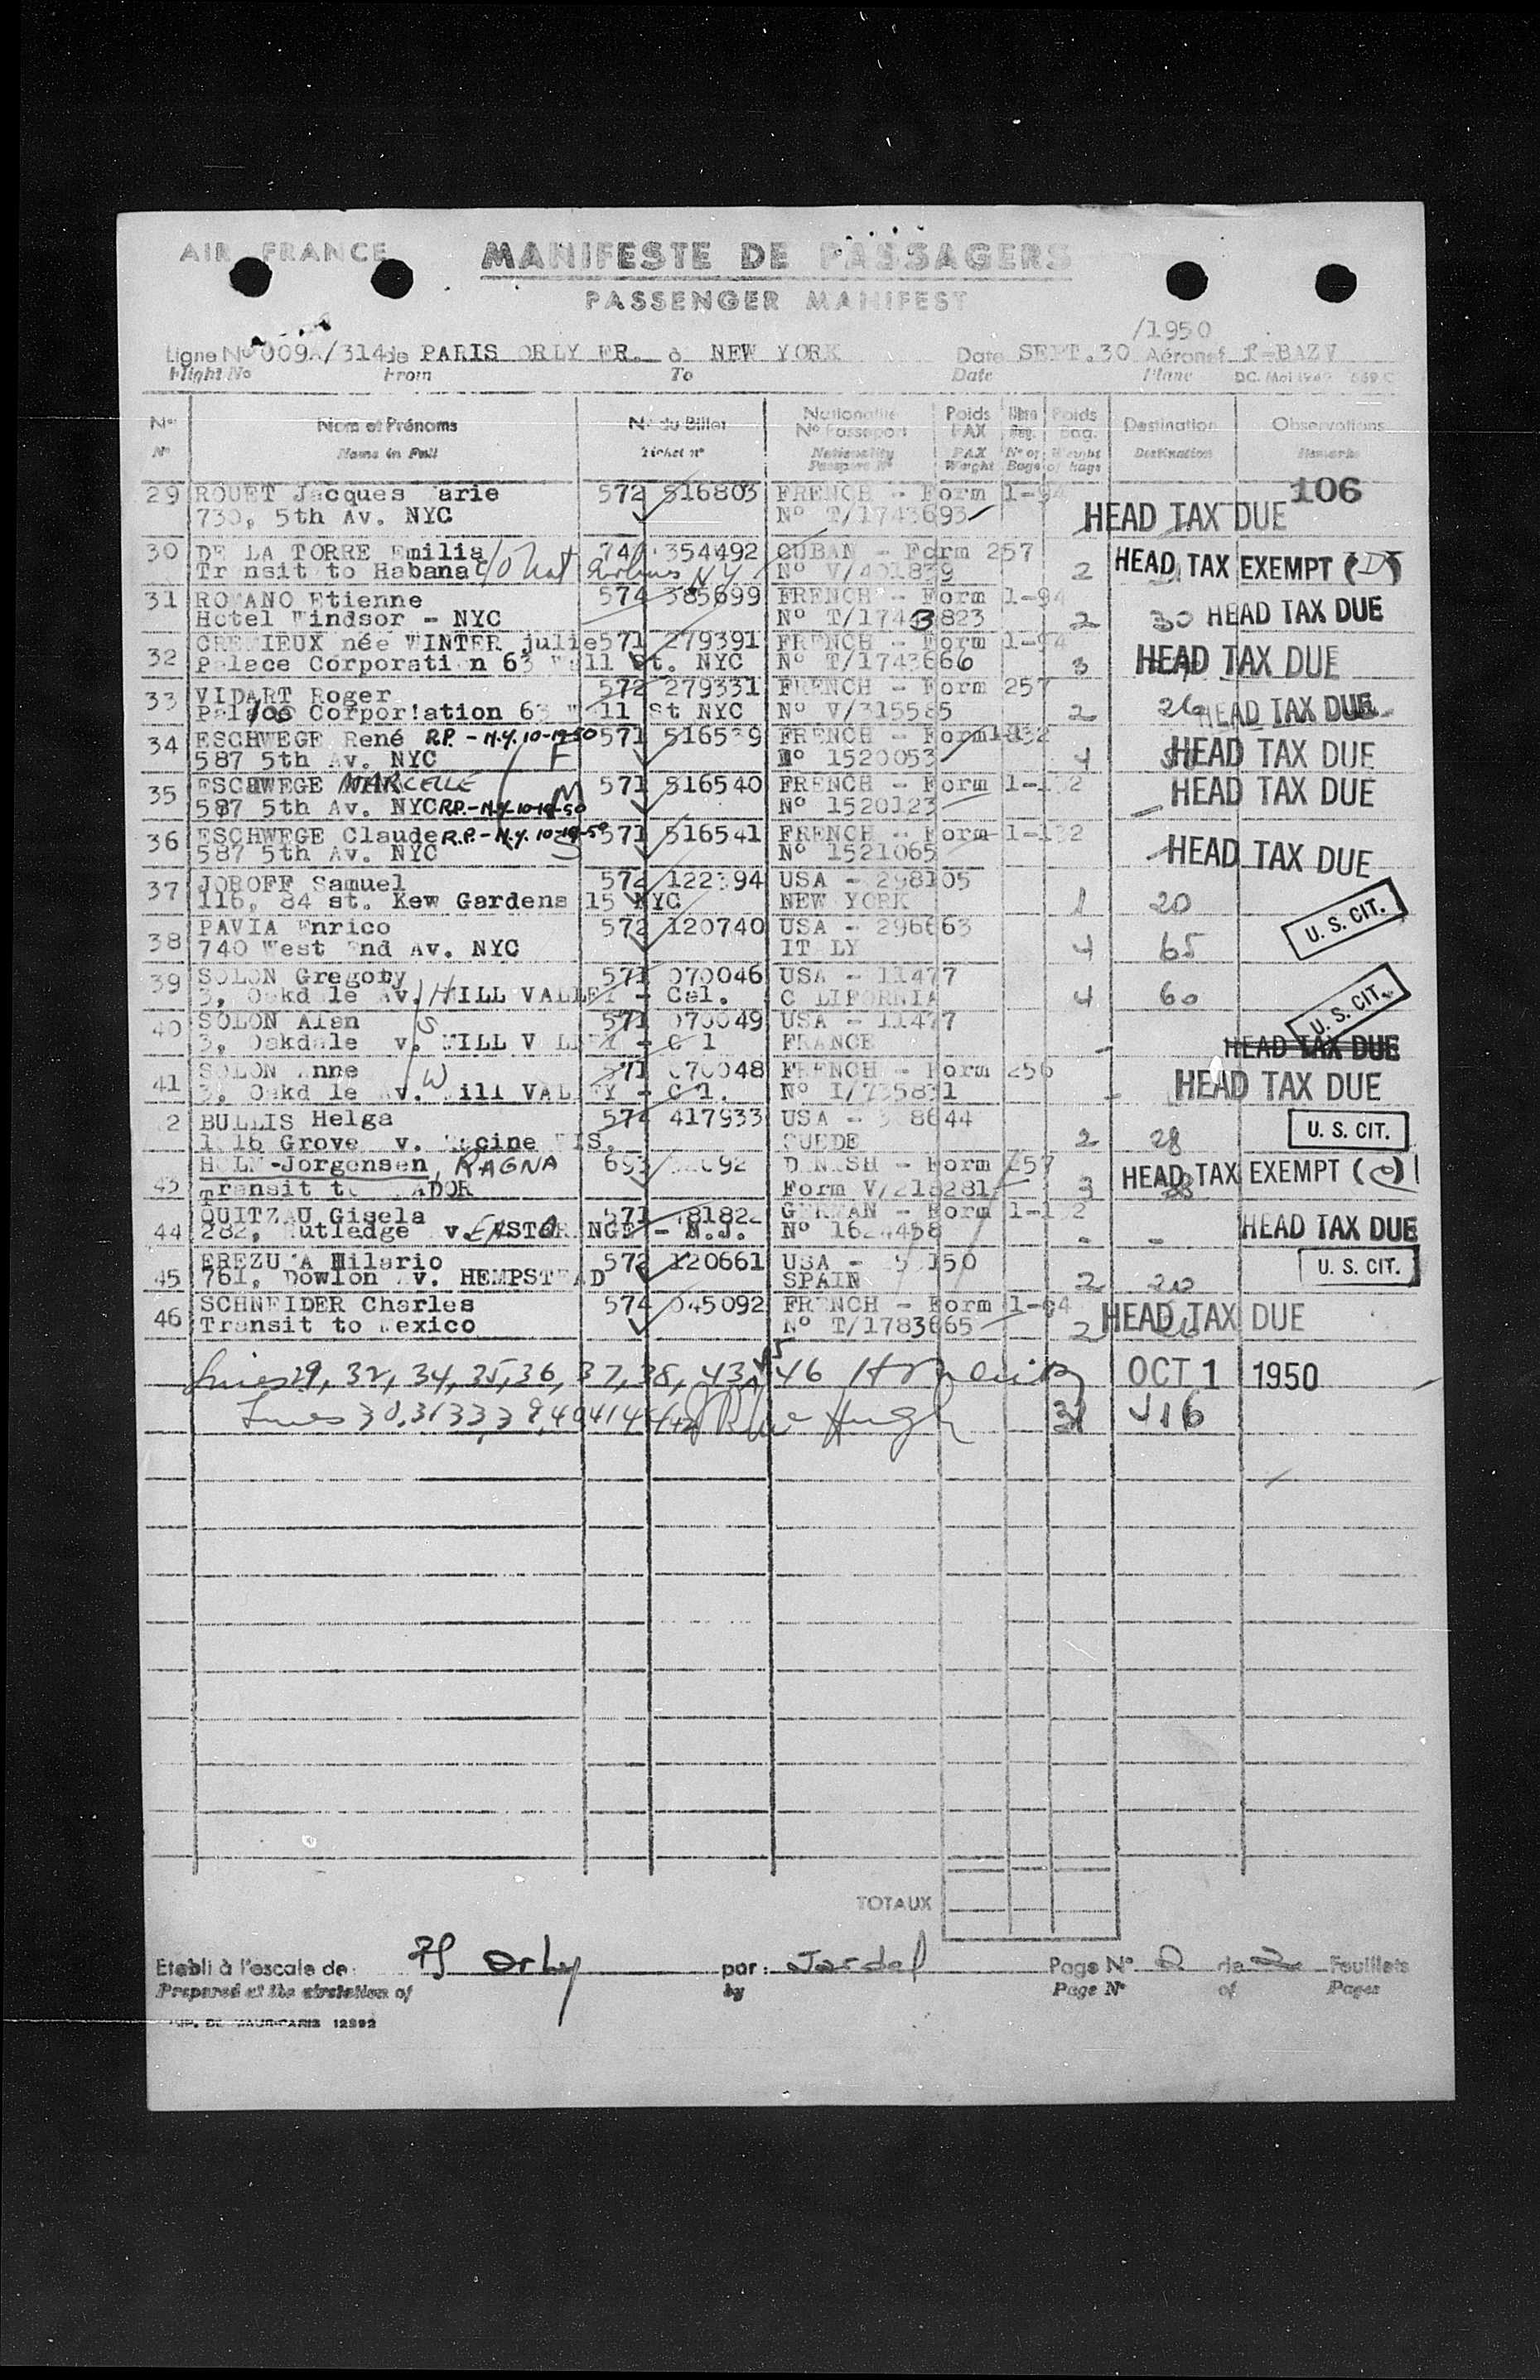 AIR FRANCE MANIFESTE DE PASSAGERS
PASSENGER MANIFEST
/1950
Ligne No 009A/314 de PARIS ORLY FR. à NEW YORK Date SEPT.30 Aéronef F-BAZV
Flight No From To Date Plane DC. Mai 1949 659 C
No Nom et Prénoms No du Billet Nationalité No Passeport Poids PAX Nbre Bag. Poids Bag. Destination Observations
No Name in Full Ticket no Nationality Passport No PAX Weight No of Bags Weight of bags Destination Remarks
106
29 ROUET Jacques arie 572 516803 FRENCH - Form 1-94
730, 5th Av. NYC No T/1743693 HEAD TAX DUE
30 DE LA TORRE Emilia 74 354492 CUBAN - Form 257
Tr nsit to Habana c/o Nat Airlines NY No V/401839 2 HEAD TAX EXEMPT (D)
31 ROMANO Etienne 574 385699 FRENCH - Form 1-94
Hotel Windsor - NYC No T/1743823 2 30 HEAD TAX DUE
32 CREMIEUX née WINTER julie 571 279391 FRENCH - Form 1-94
Palace Corporati n 63 Wall St. NYC No T/1743666 3 HEAD TAX DUE
33 VIDART Roger 572 279331 FRENCH - Form 257
Palace Corpor!ation 63 W ll St NYC No V/315585 2 26 HEAD TAX DUE
34 ESCHWEGE René R.P. - N.Y. 10-19-50 571 516539 FRENCH - Form 1-132
587 5th Av. NYC F No 1520053 4 HEAD TAX DUE
35 ESCHWEGE MARCELLE 571 516540 FRENCH - Form 1-132
587 5th Av. NYC R.P. - N.Y. 10-19-50 M No 1520123 HEAD TAX DUE
36 ESCHWEGE Claude R.P. - N.Y. 10-19-50 571 516541 FRENCH - Form 1-132
587 5th Av. NYC S No 1521065 HEAD TAX DUE
37 JOROFF Samuel 572 122394 USA - 298105
116, 84 st. Kew Gardens 15 NYC NEW YORK 1 20 U. S. CIT.
38 PAVIA Enrico 572 120740 USA - 296663
740 West End Av. NYC IT LY 4 65
39 SOLON Gregory 571 070046 USA - 11477
3, Oakd le Av. H MILL VALLEY - Cal. C LIFORNIA 4 60 U. S. CIT.
40 SOLON Alan 571 070049 USA - 11477
3, Oakdale v. S MILL V LLEY - C l FRANCE HEAD TAX DUE
41 SOLON Anne 571 070048 FRENCH - Form 256
3, Oakd le Av. W ill VALLEY - C l. No I/735831 HEAD TAX DUE
2 BULLIS Helga 574 417933 USA - 3 8644
1 16 Grove v. Racine WIS. SUEDE 2 28 U. S. CIT.
43 HOLM-Jorgensen, RAGNA 693 092 DANISH - Form 257
Transit t ADOR Form V/218281 3 HEAD TAX EXEMPT
44 QUITZAU Gisela 571 8182 GERMAN - Form 1-132
282, Rutledge v. EAST ORANGE - N.J. No 162 4458 - - HEAD TAX DUE
45 EREZU A Hilario 572 120661 USA - 5 150
761, Dowlon Av. HEMPSTEAD SPAIN 2 20 U. S. CIT.
46 SCHNEIDER Charles 574 045092 FRENCH - Form 1-94
Transit to Mexico No T/1783665 2 HEAD TAX DUE
Lines 29, 32, 34, 35, 36, 37, 38, 43, 45 46 OCT 1 1950
Lines 30, 31 33, 39, 40 41 31 416
TOTAUX
Etabli à l'escale de: Orly par: Jardel Page No 2 de 2 Feuillets
Prepared at the airstation of by Page No of Pages
IMP. DE MAUR-PARIS 12992